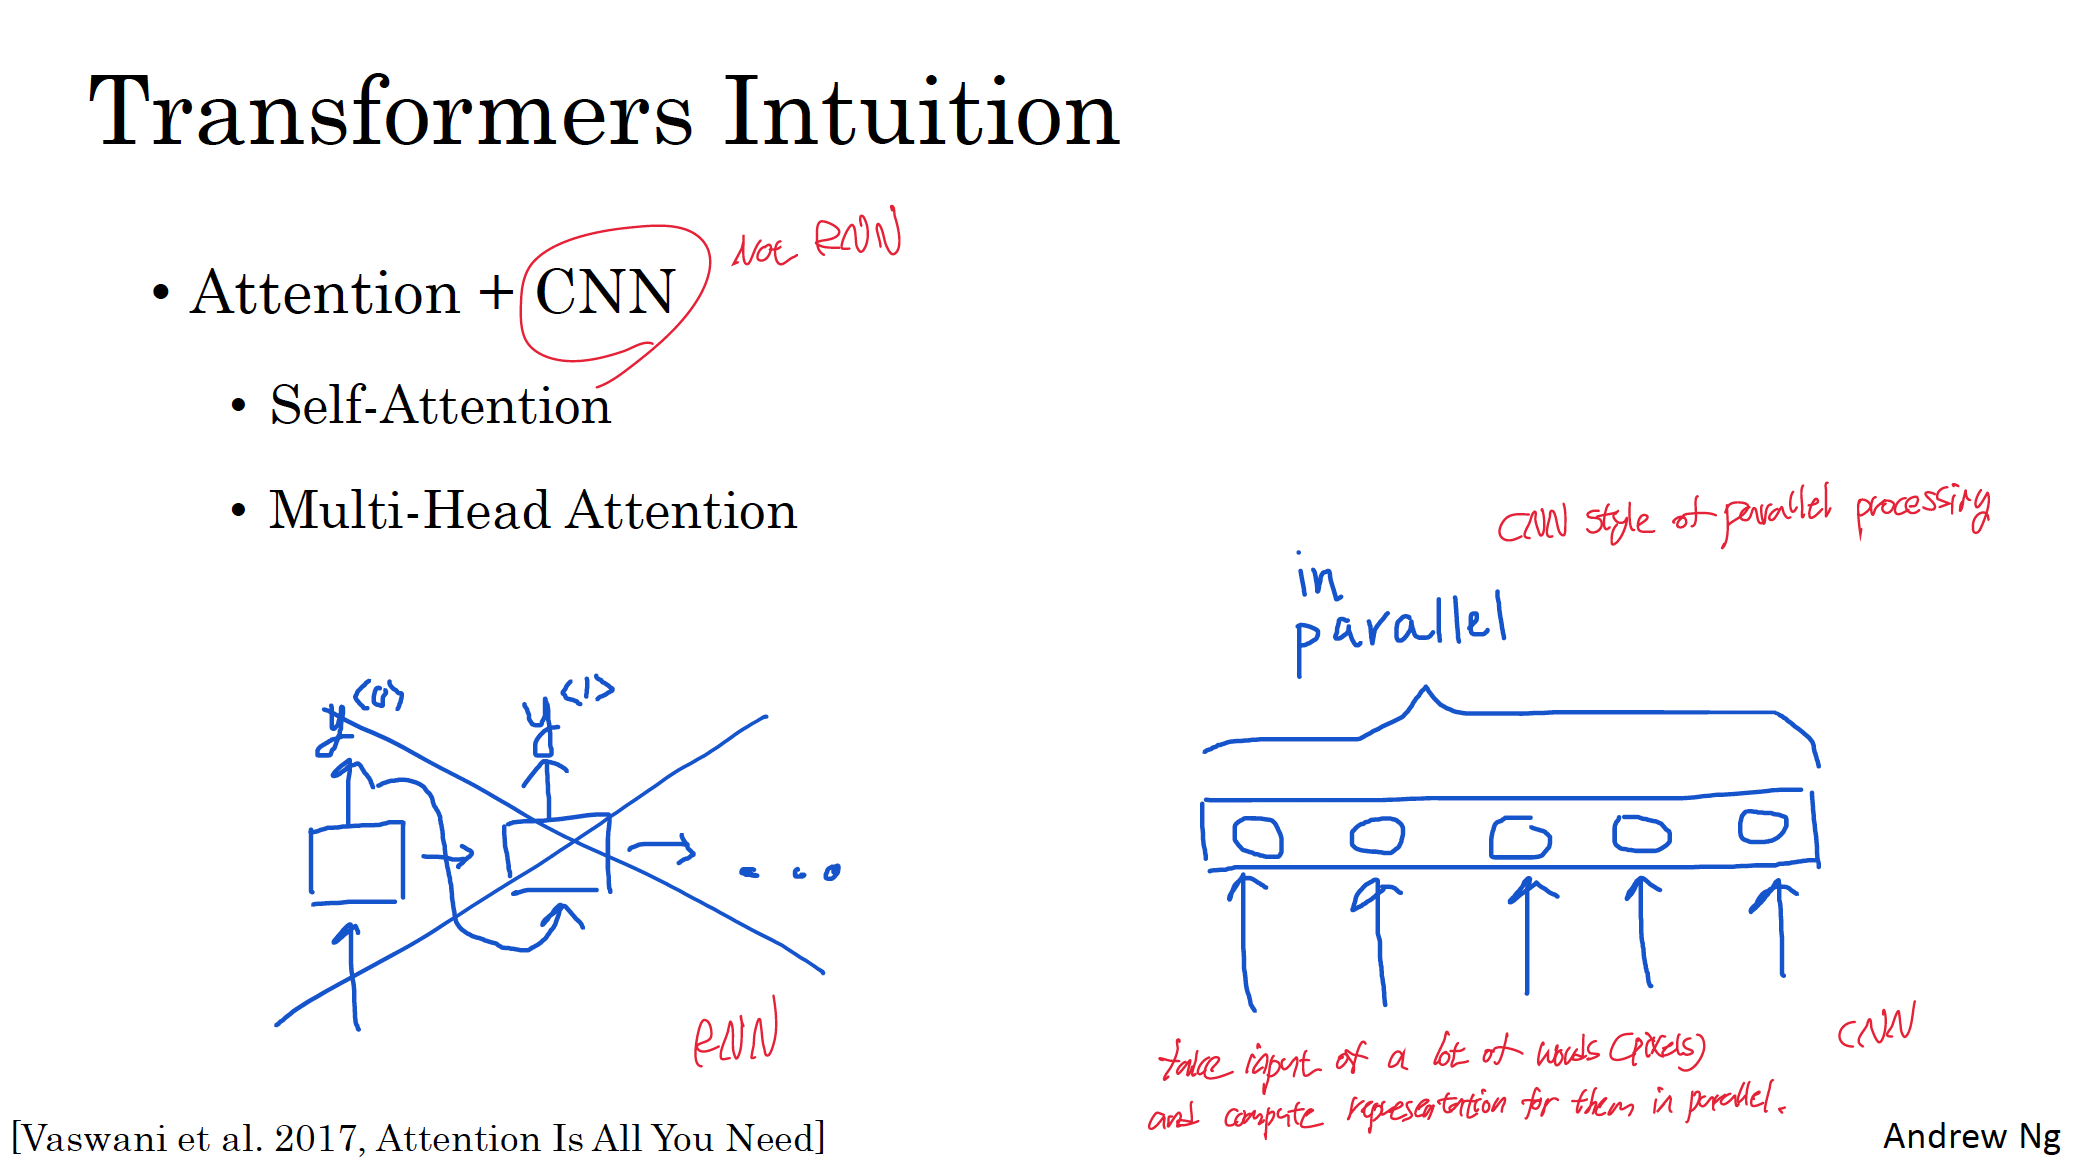 Transformers Intuition
• Attention + CNN
Not RNN
• Self-Attention
• Multi-Head Attention
CNN style of parallel processing
in
parallel
y<0>
y<1>
RNN
CNN
take input of a lot of words (pixels)
and compute representation for them in parallel.
[Vaswani et al. 2017, Attention Is All You Need]
Andrew Ng